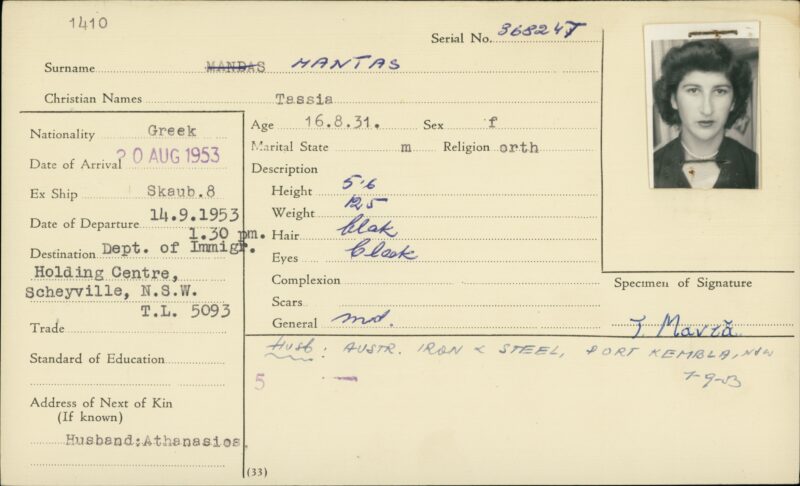 1410
Serial No. 368247
Surname MANDAS MANTAS
Christian Names Tassia
Nationality Greek
Date of Arrival 20 AUG 1953
Ex Ship Skaub.8
Date of Departure 14.9.1953
1.30 pm.
Destination Dept. of Immigr.
Holding Centre,
Scheyville, N.S.W.
T.L. 5093
Trade
Standard of Education
Address of Next of Kin
(If known)
Husband:Athanasios.
Age 16.8.31. Sex f
Marital State m Religion orth
Description
Height 5'6
Weight 125
Hair blak
Eyes black
Complexion
Scars
General md.
Specimen of Signature
Husb: AUSTR. IRON & STEEL, PORT KEMBLA, NSW
7-9-53
5 -
(33)